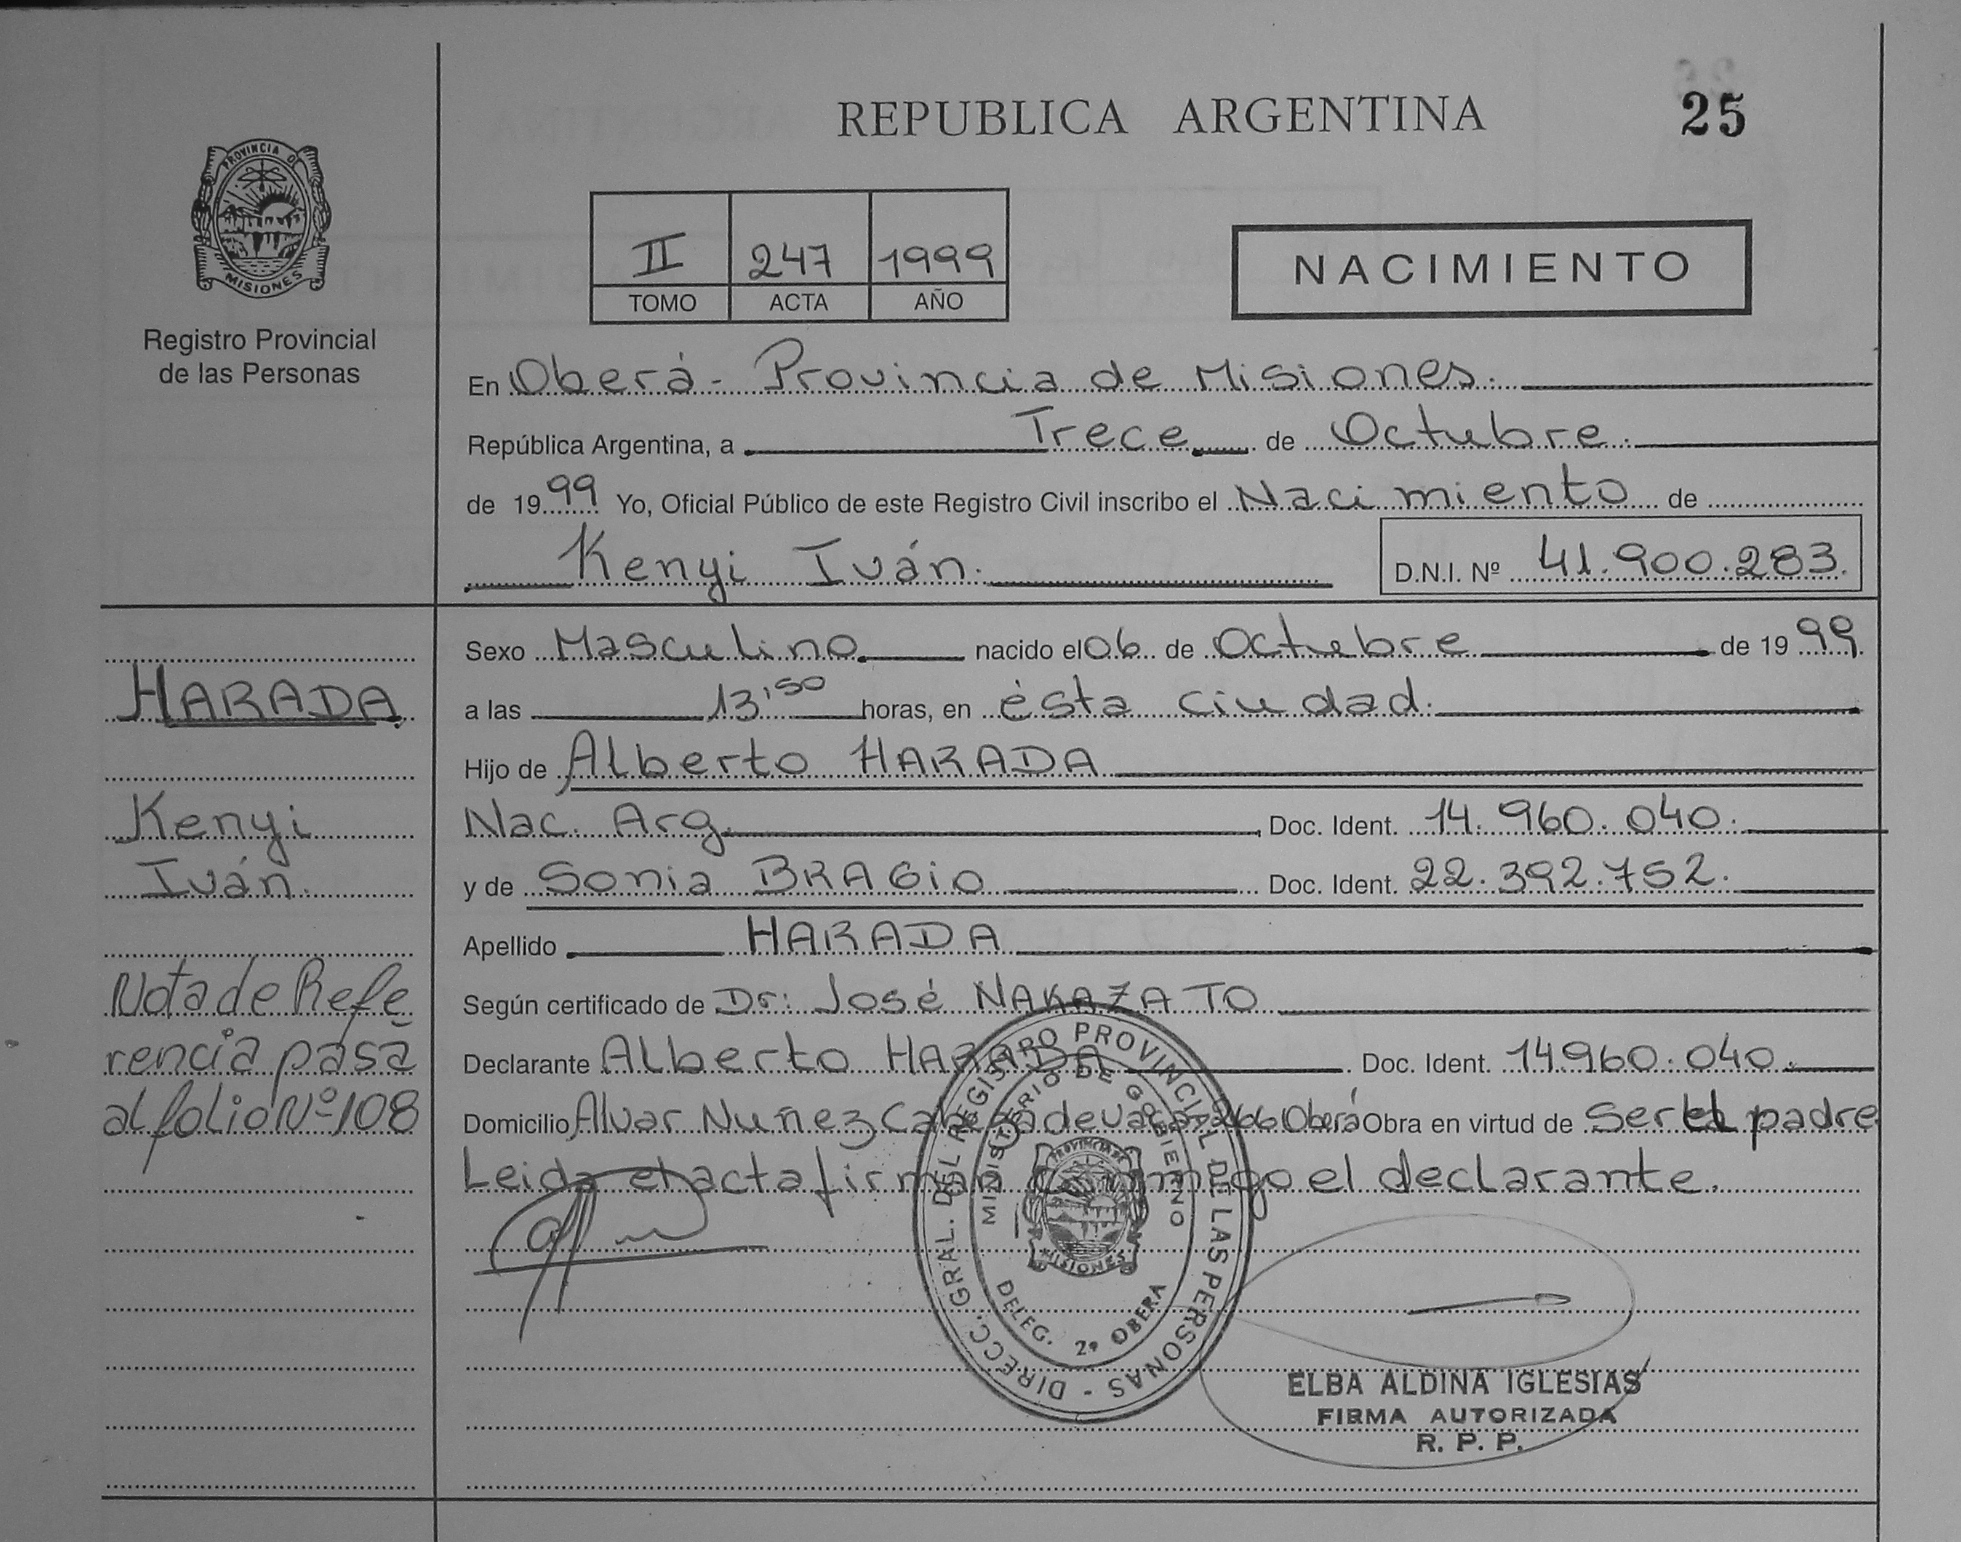 REPUBLICA ARGENTINA
25
PROVINCIA D
MISIONES
Registro Provincial
de las Personas
II 247 1999
TOMO ACTA AÑO
NACIMIENTO
En Oberá - Provincia de Misiones.
República Argentina, a Trece de Octubre.
de 1999 Yo, Oficial Público de este Registro Civil inscribo el Nacimiento de
Kenyi Iván.
D.N.I. Nº 41.900.283.
Sexo Masculino nacido el 06 de Octubre de 1999
a las 13,50 horas, en ésta ciudad.
Hijo de Alberto HARADA
Nac. Arg. Doc. Ident. 14.960.040.
y de Sonia BRAGIO Doc. Ident. 22.392.752.
Apellido HARADA
Según certificado de Dr: José NAKAZATO
Declarante Alberto HARADA Doc. Ident. 14960.040.
Domicilio Alvar Nuñez Cabeza de Vaca 266 Oberá Obra en virtud de ser el padre
Leida el acta firman conmigo el declarante.
HARADA
Kenyi
Iván.
Nota de Refe
rencia pasa
al folio Nº 108
DIRECC. GRAL. DEL REGISTRO PROVINCIAL DE LAS PERSONAS -
MINISTERIO DE GOBIERNO
PROVINCIA DE
MISIONES
DELEG. 2º OBERA
ELBA ALDINA IGLESIAS
FIRMA AUTORIZADA
R. P. P.